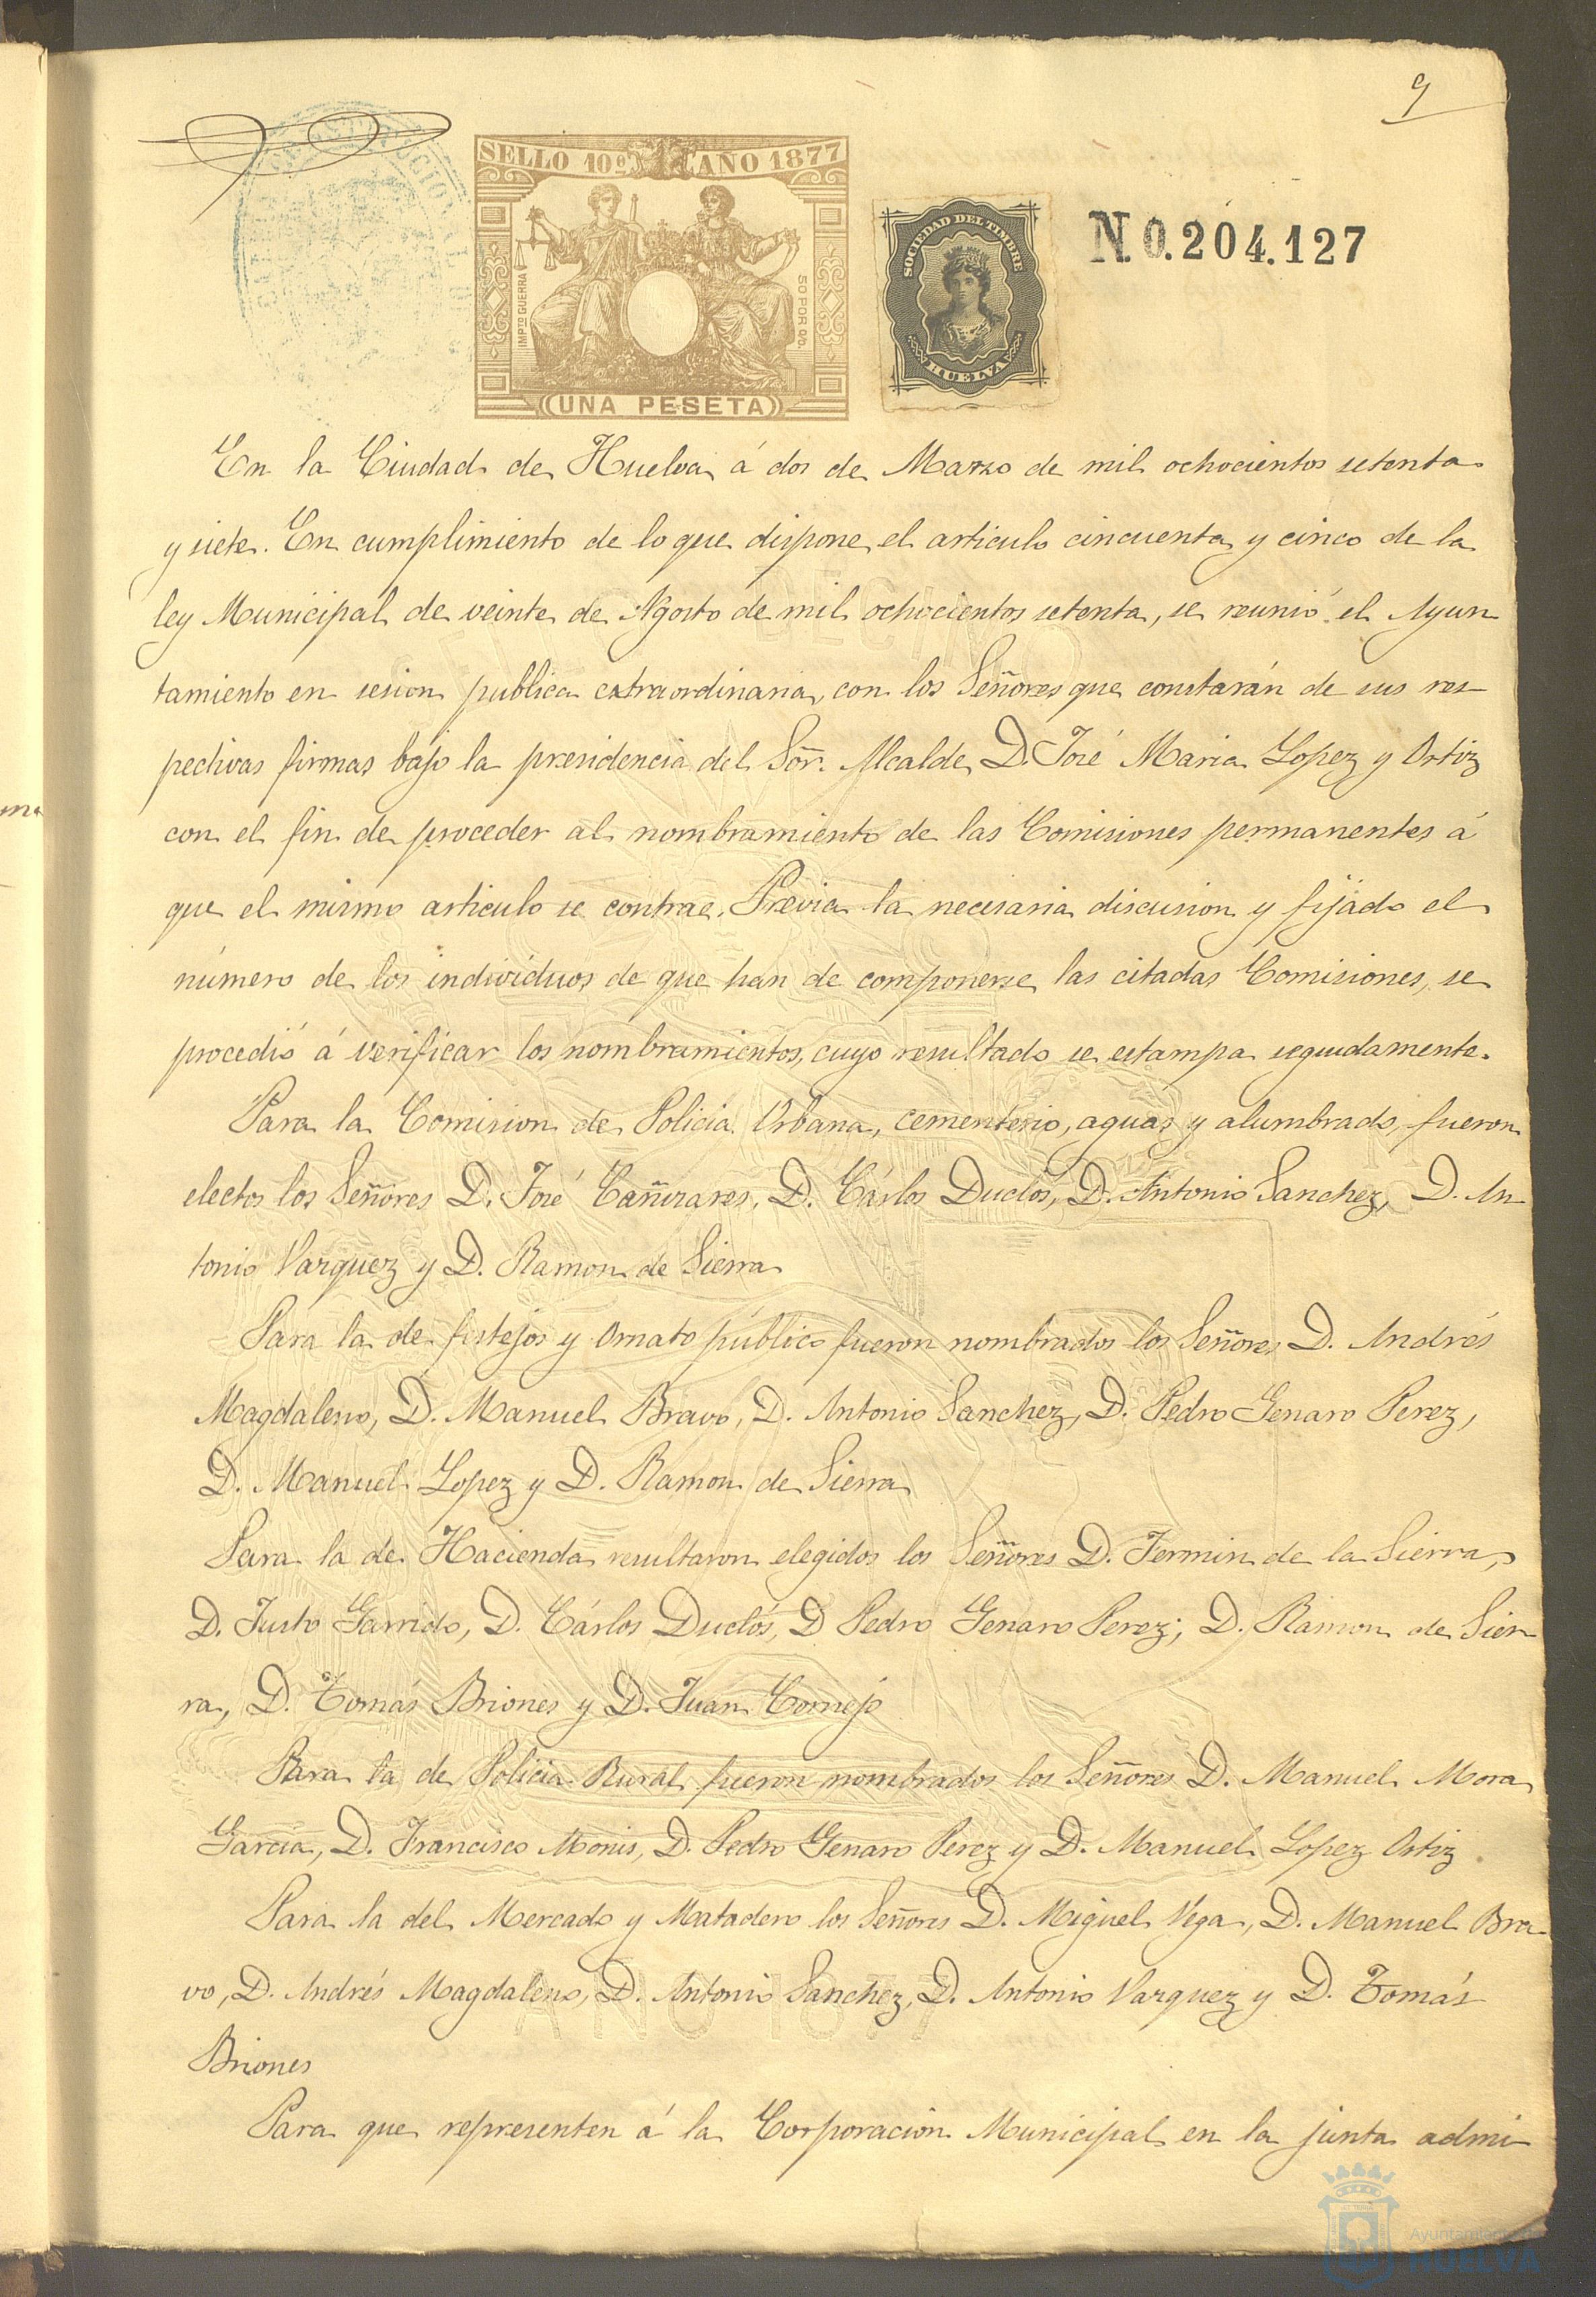 9
SELLO 10º AÑO 1877
IMPTO GUERRA
50 POR 0/0
UNA PESETA
SOCIEDAD DEL TIMBRE
HUELVA
N.0.204.127
En la Ciudad de Huelva á dos de Marzo de mil ochocientos setenta
y siete. En cumplimiento de lo que dispone el articulo cincuenta y cinco de la
ley Municipal de veinte de Agosto de mil ochocientos setenta, se reunió el Ayun
tamiento en sesion publica extraordinaria, con los Señores que constarán de sus res-
pectivas firmas bajo la presidencia del Sõr. Alcalde, D. José Maria Lopez y Ortiz
con el fin de proceder al nombramiento de las Comisiones permanentes á
que el mismo articulo se contrae. Previa la necesaria discusion y fijado el
número de los individuos de que han de componerse las citadas Comisiones, se
procedió á verificar los nombramientos, cuyo resultado se estampa seguidamente.
Para la Comision de Policia Urbana, cementerio, aguas y alumbrado, fueron
electos los Señores D. José Cañizares, D. Cárlos Duclós, D. Antonio Sanchez, D. An-
tonio Vazquez y D. Ramon de Sierra
Para la de festejos y Ornato público fueron nombrados los Señores D. Andrés
Magdaleno, D. Manuel Bravo, D. Antonio Sanchez, D. Pedro Genaro Perez,
D. Manuel Lopez y D. Ramon de Sierra
Para la de Hacienda resultaron elegidos los Señores D. Fermin de la Sierra,
D. Justo Garrido, D. Cárlos Duclós, D Pedro Genaro Perez; D. Ramon de Sier-
ra, D. Tomás Briones y D. Juan Cornejo
Para la de Policia Rural fueron nombrados los Señores D. Manuel Mora
García, D. Francisco Monis, D. Pedro Genaro Perez y D. Manuel Lopez Ortiz.
Para la del Mercado y Matadero los Señores D. Miguel Vega, D. Manuel Bra-
vo, D. Andrés Magdaleno, D. Antonio Sanchez, D. Antonio Vazquez y D. Tomás
Briones
Para que representen á la Corporacion Municipal en la junta admi-
AÑO 1877
Ayuntamiento de
HUELVA